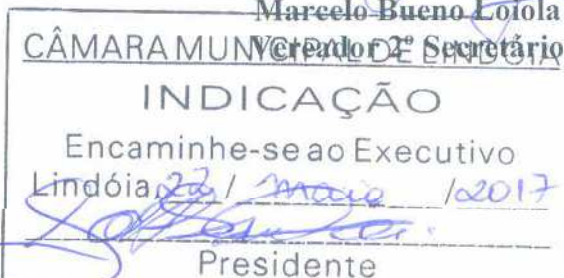 Marcelo Bueno Loiola
Vereador 2º Secretário
CÂMARA MUNICIPAL DE LINDÓIA
INDICAÇÃO
Encaminhe-se ao Executivo
Lindóia 22 / maio /2017
Presidente